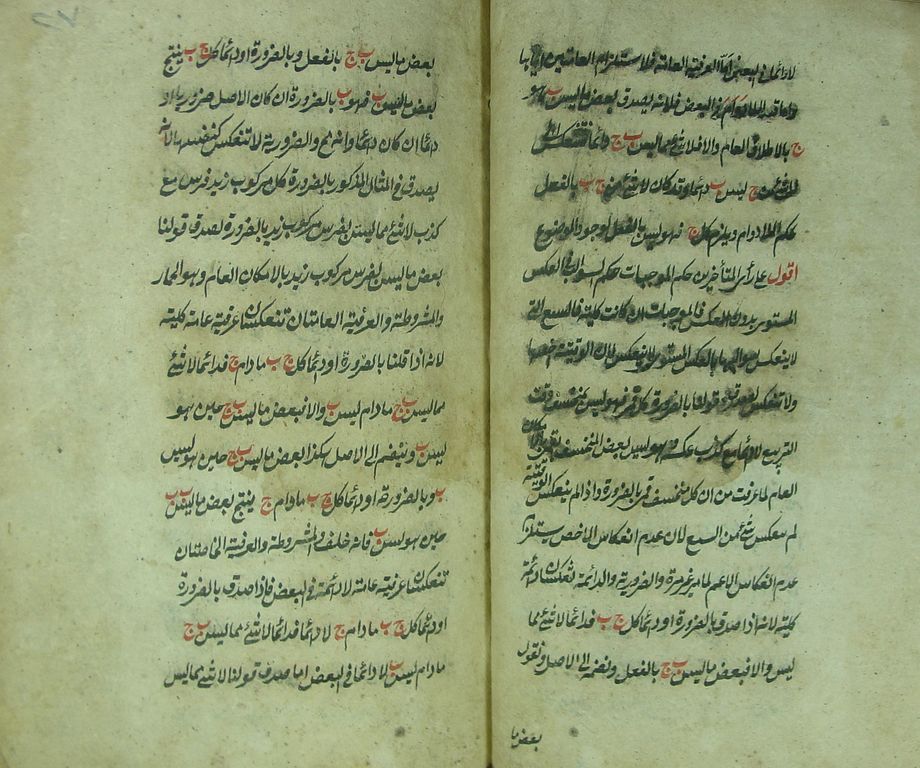 لا دائما في البعض اما العرفية العامة فلاستلزام العامتين اياها
واما قيد اللادوام في البعض فلانه يصدق بعض ما ليس ب هو
ج بالاطلاق العام والا فلا شئ مما ليس ب ج دائما فتنعكس الى
لا شئ من ج ليس ب دائما وقد كان لا شئ من ج ب بالفعل
بحكم اللادوام ويلزم كل ج فهو ليس ب بالفعل لوجود الموضوع
اقول على رأى المتأخرين حكم الموجبات حكم السوالب في العكس
المستوى بدون العكس فالموجبات ان كانت كلية فالسبع التى
لا ينعكس سوالبها بالعكس المستوى لا ينعكس لان الوقتية اخصها
ولا تنعكس لصدق قولنا بالضرورة كل قمر فهو ليس بمنخسف وقت
التربيع لا دائما مع كذب عكسه وهو ليس بعض المنخسف بقمر بالامكان
العام لما عرفت من ان كل منخسف قمر بالضرورة واذا لم ينعكس الوقتية
لم ينعكس شئ من السبع لان عدم انعكاس الاخص يستلزم
عدم انعكاس الاعم لما مر غير مرة والضرورية والدائمة تنعكسان دائمة
كلية لانه اذا صدق بالضرورة او دائما كل ج ب فدائما لا شئ مما
ليس ب ج والا فبعض ما ليس ب ج بالفعل ونضمه الى الاصل ونقول
بعض ما
بعض ما ليس ب ج بالفعل وبالضرورة او دائما كل ج ب ينتج
بعض ما ليس ب فهو ب بالضرورة ان كان الاصل ضروريا او
دائما ان كان دائما وانه مح والضرورية لا تنعكس كنفسها لانه
يصدق في المثال المذكور بالضرورة كل مركوب زيد فرس مع
كذب لا شئ مما ليس بفرس مركوب زيد بالضرورة لصدق قولنا
بعض ما ليس بفرس مركوب زيد بالامكان العام وهو الحمار
والمشروطة والعرفية العامتان تنعكسان عرفية عامة كلية
لانه اذا قلنا بالضرورة او دائما كل ج ب ما دام ج فدائما لا شئ
مما ليس ب ج ما دام ليس ب والا فبعض ما ليس ب ج حين هو
ليس ب وينضم الى الاصل هكذا بعض ما ليس ب ج حين هو ليس
ب وبالضرورة او دائما كل ج ب ما دام ج ينتج بعض ما ليس ب ب
حين هو ليس ب فانه خلف والمشروطة والعرفية الخاصتان
تنعكسان عرفية عامة لا دائمة في البعض فاذا صدق بالضرورة
او دائما كل ج ب ما دام ج لا دائما فدائما لا شئ مما ليس ب ج
ما دام ليس ب لا دائما في البعض اما صدق قولنا لا شئ مما ليس